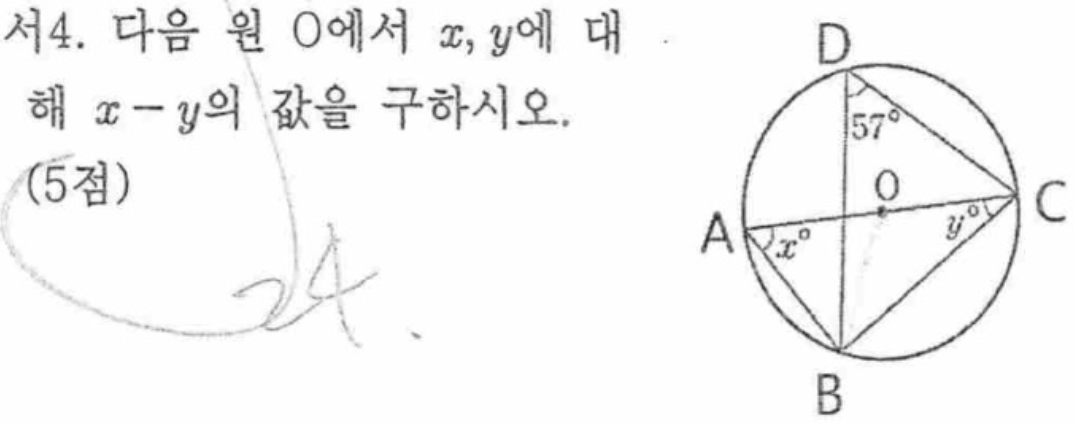 서4. 다음 원 O에서 x, y에 대
해 x - y의 값을 구하시오.
(5점)
24.
D
57°
O
C
A
x°
y°
B